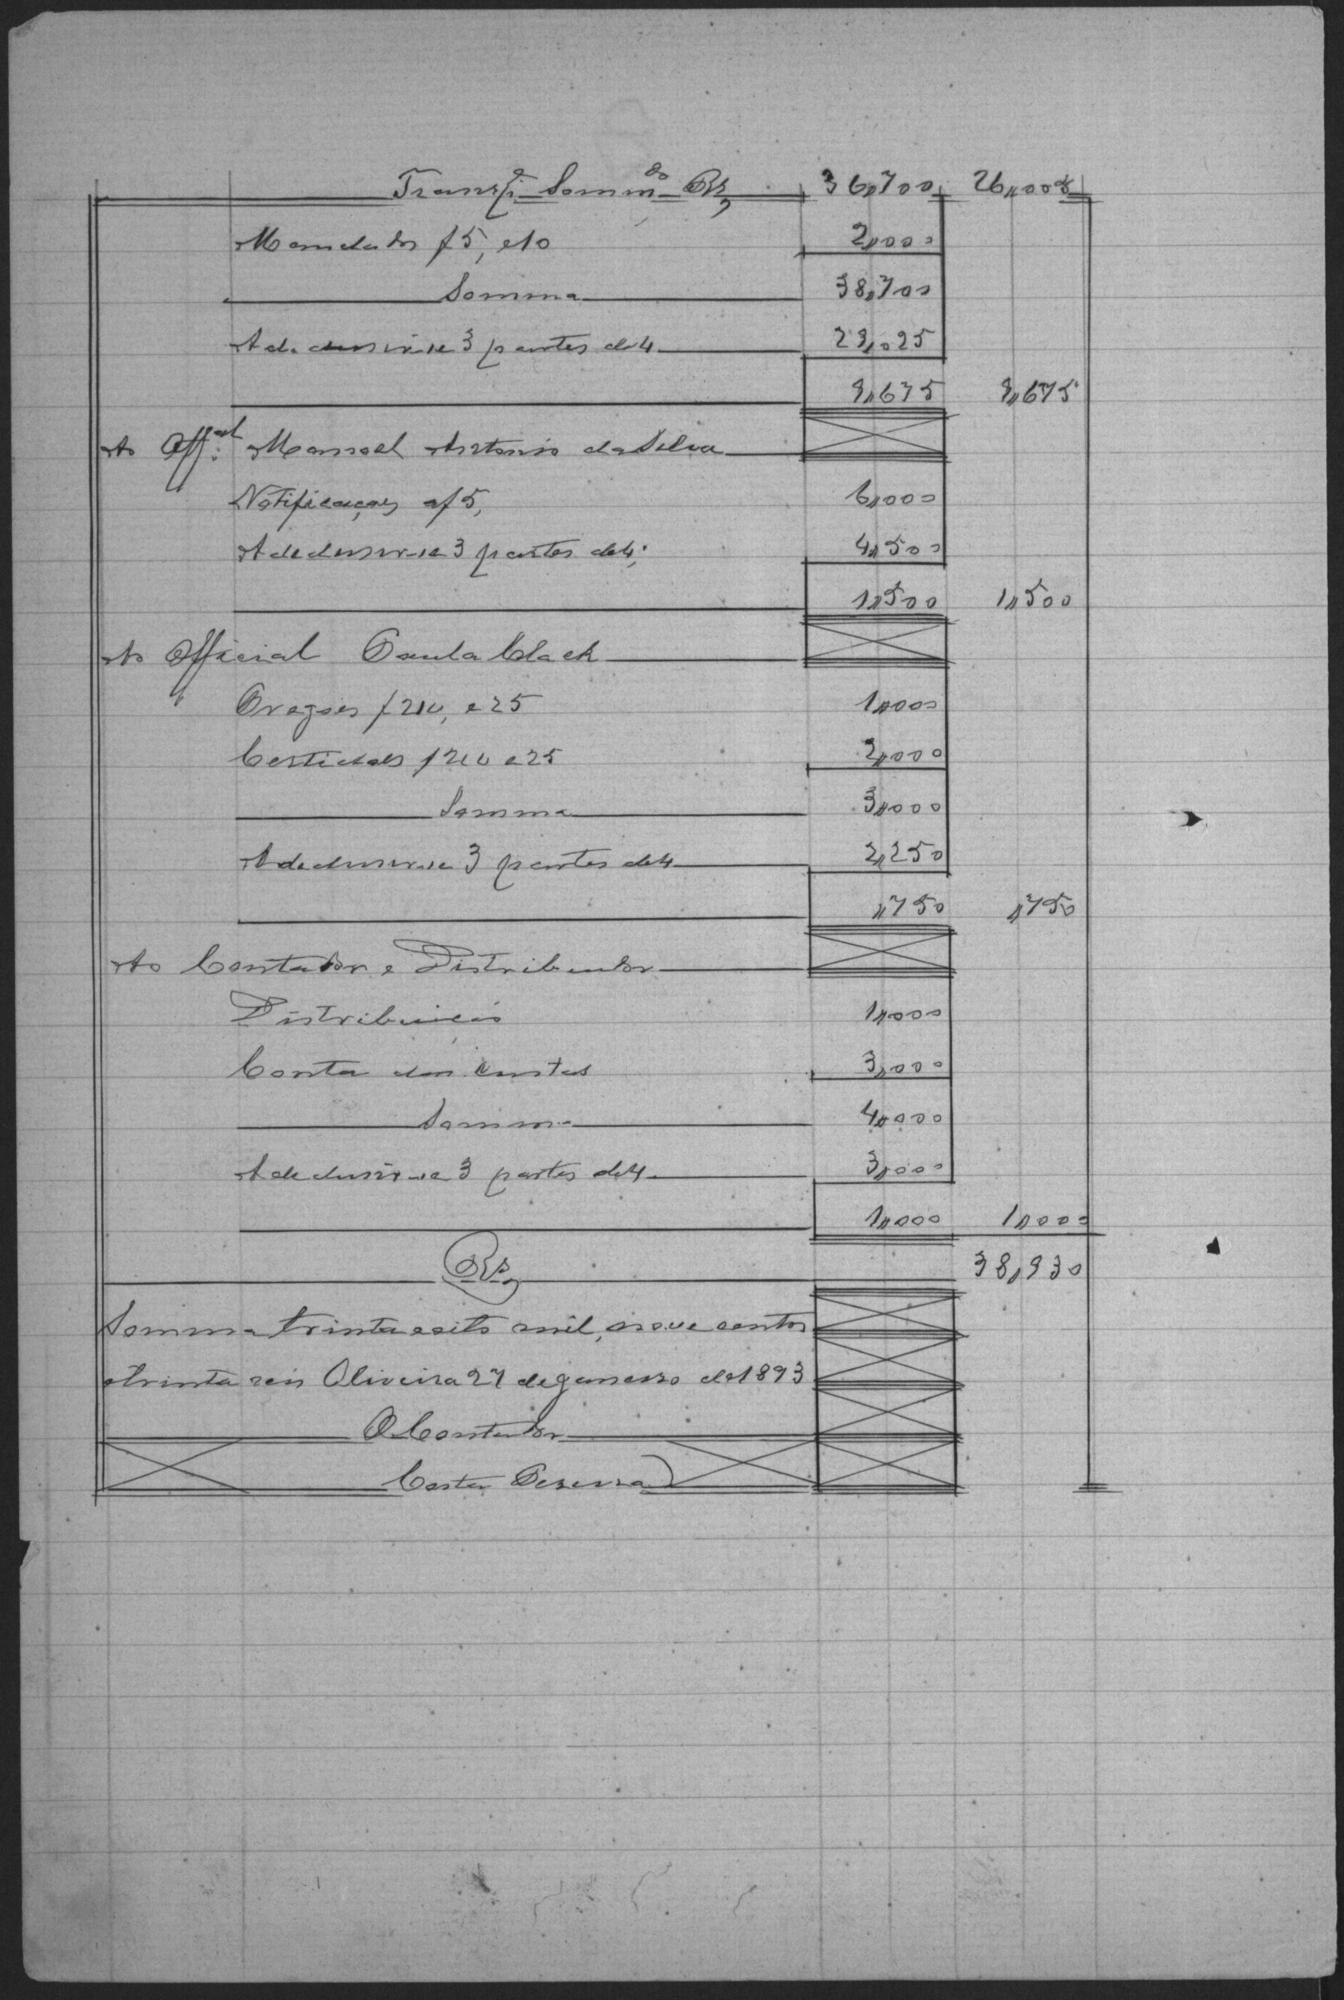 Transpe. Sommdo Rs, 36,700 26,005
Mandados f 5, e 10 2,000
Somma 38,700
A dedusir-se 3 partes de 4 29,025
9,675 9,675
Ao Offal. Manoel Antonio da Silva
Notificações af 5, 6,000
A dedusir-se 3 partes de 4, 4,500
1,500 1,500
Ao Official Paula Clack
Pregões f 24, e 25 1,000
Certidões f 24 e 25 2,000
Somma 3,000
A dedusir-se 3 partes de 4 2,250
,750 ,750
Ao Contador e Distribuidor
Distribuição 1,000
Conta das custas 3,000
Somma 4,000
A dedusir-se 3 partes de 4 3,000
1,000 1,000
Rs, 38,930
Somma trinta e oito mil, nove centos
e trinta reis Oliveira 27 de janeiro de 1893
O Contador
Costa Pereira